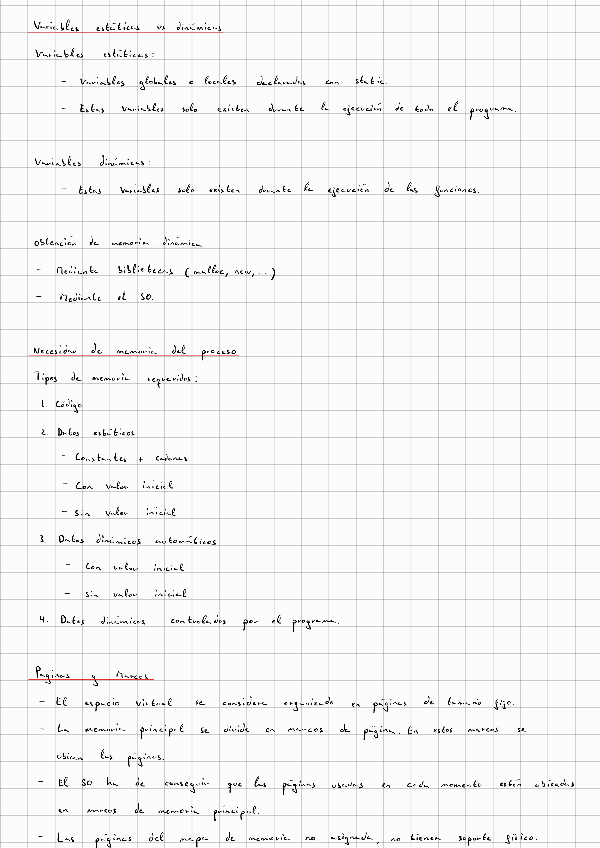 Variables estáticas vs dinámicas
Variables estáticas:
- Variables globales o locales declaradas con static.
- Estas variables solo existen durante la ejecución de todo el programa.
Variables dinámicas:
- Estas variables solo existen durante la ejecución de las funciones.
Obtención de memoria dinámica
- Mediante bibliotecas (malloc, new, ...)
- Mediante el SO.
Necesidad de memoria del proceso
Tipos de memoria requeridos:
1. Código
2. Datos estáticos
- Constantes + cadenas
- Con valor inicial
- Sin valor inicial
3. Datos dinámicos automáticos
- Con valor inicial
- Sin valor inicial
4. Datos dinámicos controlados por el programa.
Páginas y Marcos
- El espacio virtual se considera organizado en páginas de tamaño fijo.
- La memoria principal se divide en marcos de página. En estos marcos se
ubican las páginas.
- El SO ha de conseguir que las páginas usadas en cada momento estén ubicadas
en marcos de memoria principal.
- Las páginas del mapa de memoria no asignada, no tienen soporte físico.